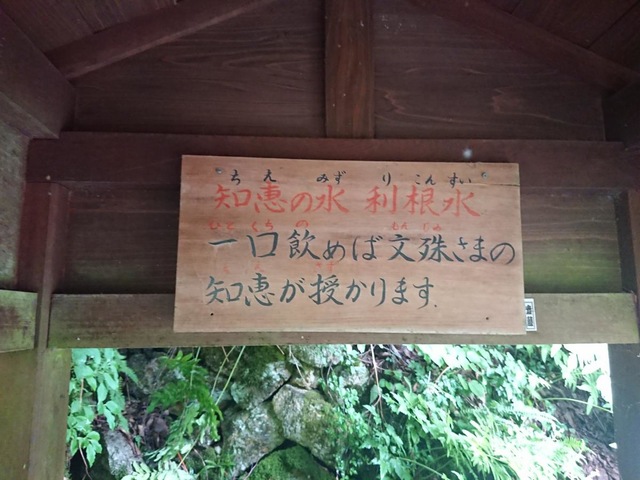 ちえ みず りこんすい
知恵の水 利根水
ひとくち の もんじゅ
一口飲めば文殊さまの
知恵が授かります.